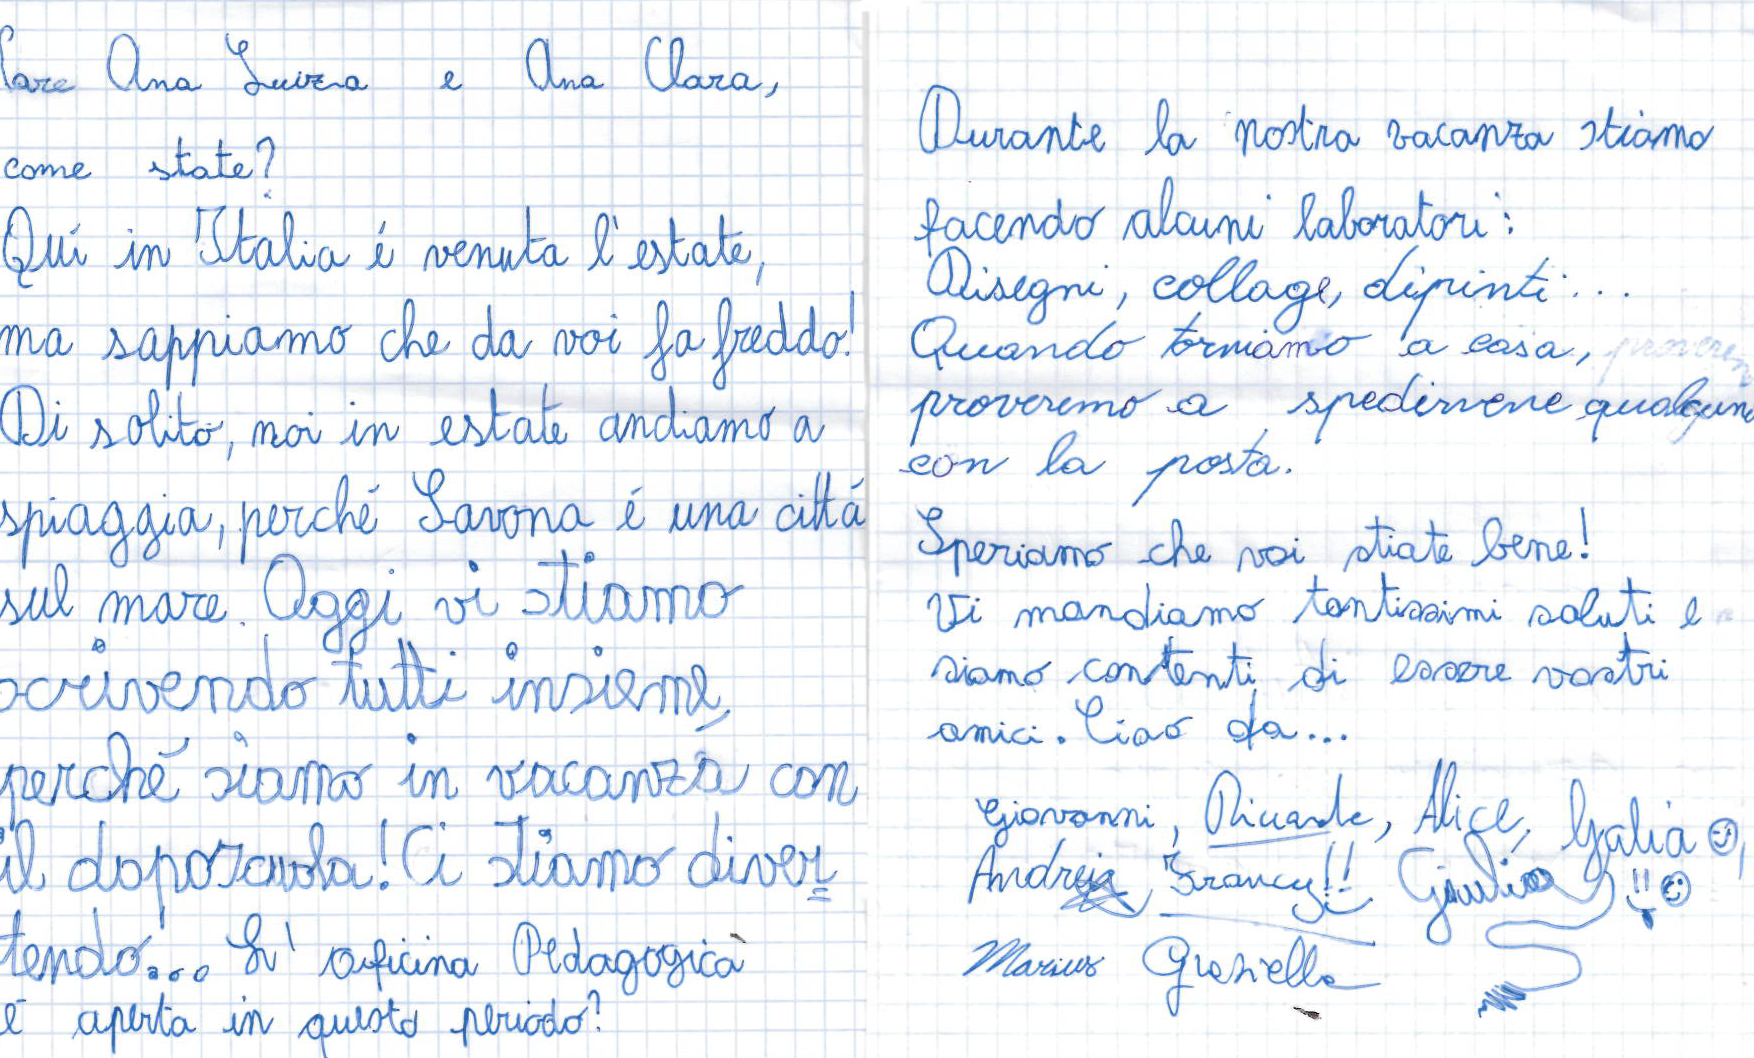 Care Ana Luiza e Ana Clara,
come state?
Qui in Italia é venuta l'estate,
ma sappiamo che da voi fa freddo!
Di solito, noi in estate andiamo a
spiaggia, perché Savona é una cittá
sul mare. Oggi vi stiamo
scrivendo tutti insieme,
perché siamo in vacanza con
il doposcuola! Ci stiamo diver=
tendo... L'oficina Pedagogica
é aperta in questo periodo?
Durante la nostra vacanza stiamo
facendo alcuni laboratori:
Disegni, collage, dipinti...
Quando torniamo a casa,
proveremo a spedirvene qualcuno
con la posta.
Speriamo che voi stiate bene!
Vi mandiamo tantissimi saluti e
siamo contenti di essere vostri
amici. Ciao da...
Giovanni, Riccardo, Alice, Galia ☺,
Andreia, Francy!! Giulia !! ☺
Marius Graziella